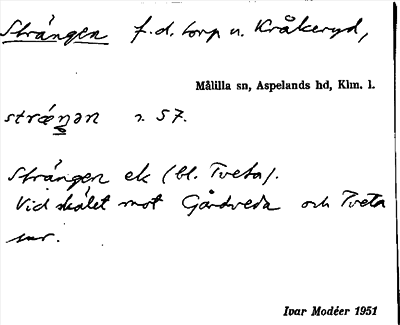 Strången f.d. torp u. Kråkeryd,
Målilla sn, Aspelands hd, Klm. l.
strǽŋən s. 57.
Strången ek (bl. Tveta).
Vid skälet mot Gårdveda och Tveta
snr.
Ivar Modéer 1951